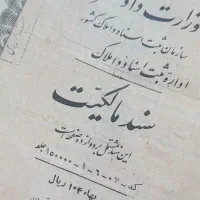 وزارت داد
سازمان ثبت اسناد و املاک کشور
اداره ثبت اسناد و املاک
سند مالکیت
این سند مشتمل بر دوازده صفحه است
کد - ۰۷ - ۶ - ۱ - ۱۵۰۰۰۰ جلد
بهاء ۱۰۴ ریال